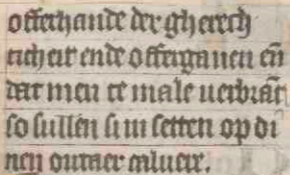 offerhande der gherech
ticheit ende offergauen eñ
dat men te male uerbrāt
so sullen si in setten op di
nen outaer caluere.